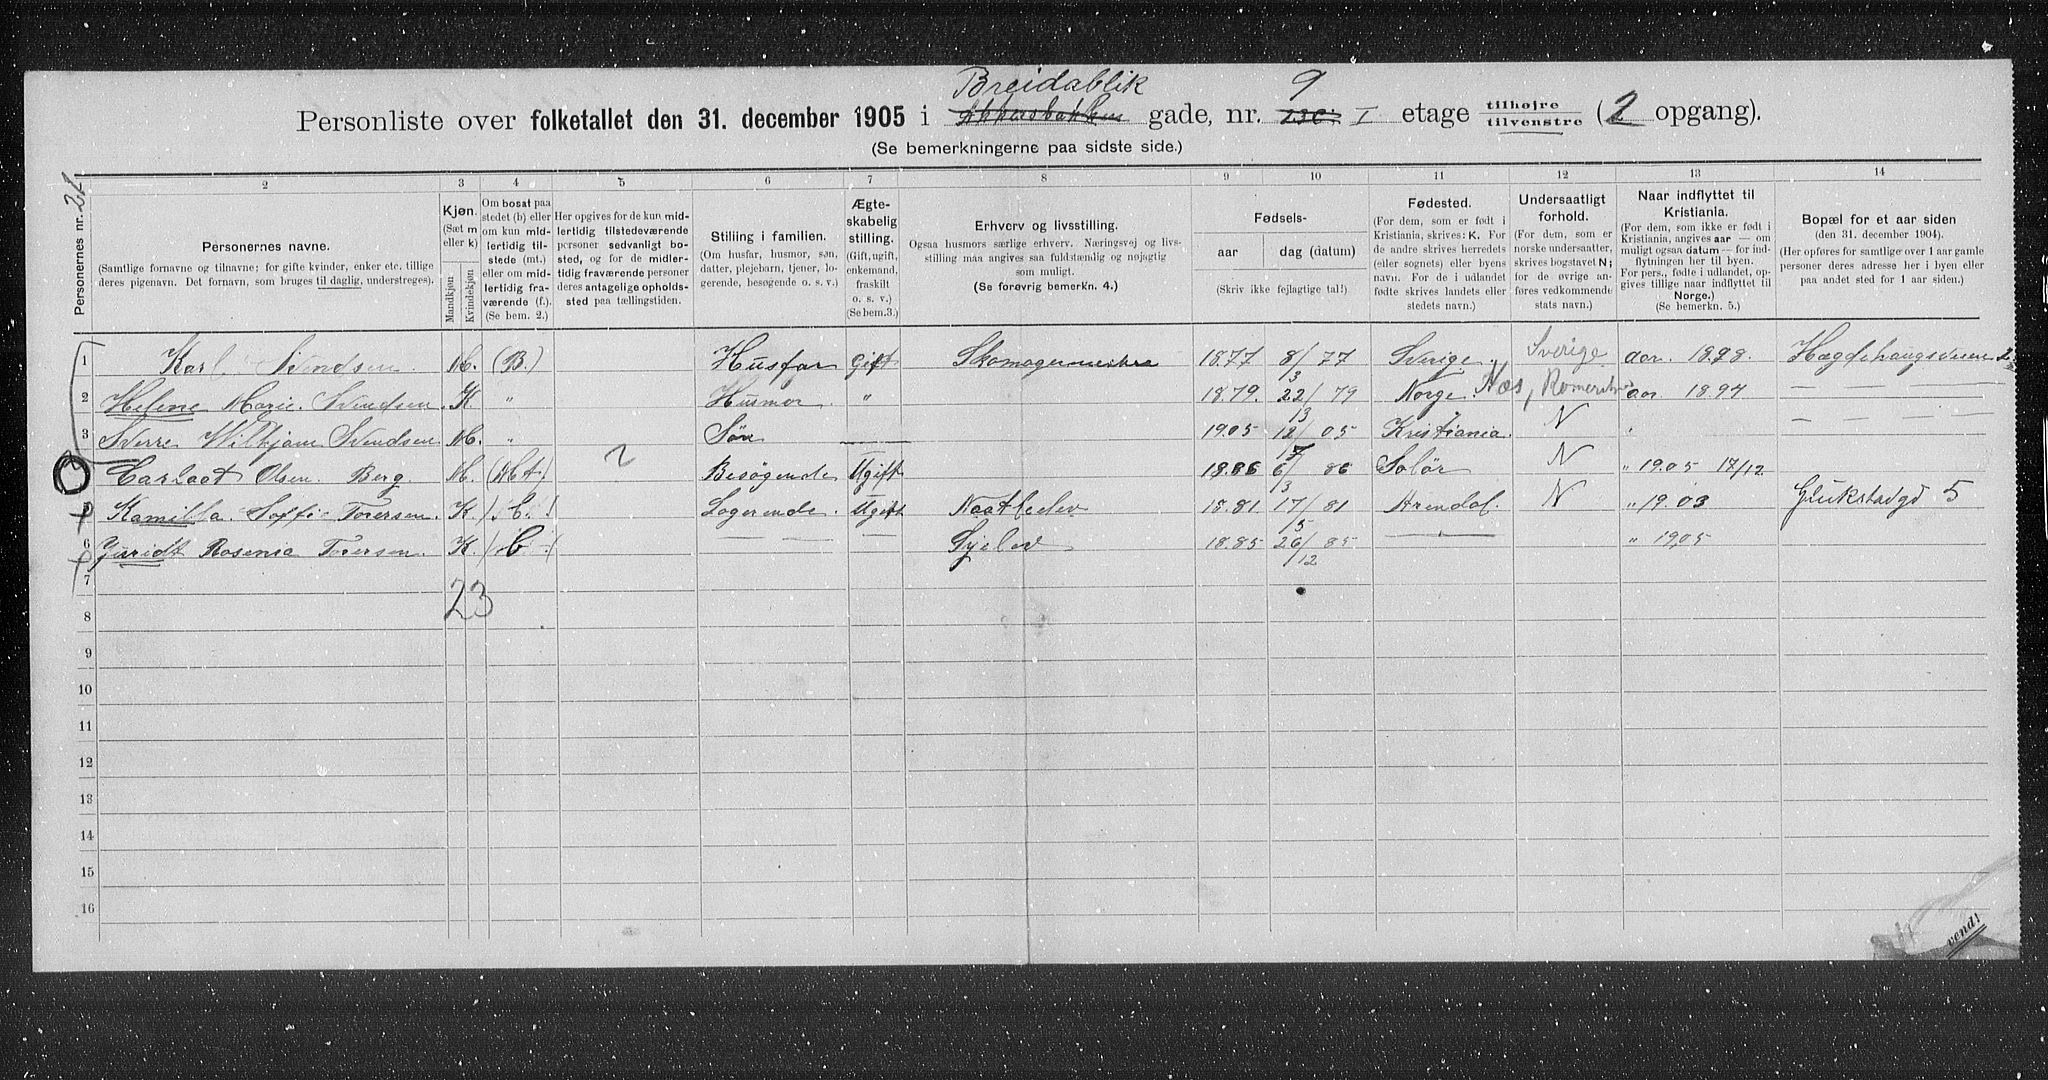 Breidablik 9
Personliste over folketallet den 31. december 1905 i gade, nr. I etage tilhøjre tilvenstre (2 opgang).
(Se bemerkningerne paa sidste side.)
2 3 4 5 6 7 8 9 10 11 12 13 14
Personernes nr. 21
Personernes navne.
(Samtlige fornavne og tilnavne; for gifte kvinder, enker etc. tillige
deres pigenavn. Det fornavn, som bruges til daglig, understreges).
Kjøn.
(Sæt m
eller k)
Mandkjøn
Kvindekjøn
Om bosat paa
stedet (b) eller
om kun mid-
lertidig til-
stede (mt.)
eller om mid-
lertidig fra-
værende (f.).
(Se bem. 2.)
Her opgives for de kun mid-
lertidig tilstedeværende
personer sedvanlig bo-
sted, og for de midler-
tidig fraværende personer
deres antagelige opholds-
sted paa tællingstiden.
Stilling i familien.
(Om husfar, husmor, søn,
datter, plejebarn, tjener, lo-
gerende, besøgende o. s. v.)
Ægte-
skabelig
stilling.
(Gift, ugift,
enkemand,
fraskilt
o. s. v.)
(Se bem. 3.)
Erhverv og livsstilling.
Ogsaa husmors særlige erhverv. Næringsvej og livs-
stilling maa angives saa fuldstændig og nøjagtig
som muligt.
(Se forøvrig bemerkn. 4.)
Fødsels-
aar dag (datum)
(Skriv ikke fejlagtige tal!)
Fødested.
(For dem, som er født i
Kristiania, skrives: K. For
de andre skrives herredets
(eller sognets) eller byens
navn. For de i udlandet
fødte skrives landets eller
stedets navn.)
Undersaatligt
forhold.
(For dem, som er
norske undersaatter,
skrives bogstavet N;
for de øvrige an-
føres vedkommende
stats navn.)
Naar indflyttet til
Kristiania.
(For dem, som ikke er født i
Kristiania, angives aar — om
muligt ogsaa datum — for ind-
flytningen her til byen.
For pers., fødte i udlandet, op-
gives tillige naar indflyttet til
Norge.)
(Se bemerkn. 5.)
Bopæl for et aar siden
(den 31. december 1904).
(Her opføres for samtlige over 1 aar gamle
personer deres adresse her i byen eller
paa andet sted for 1 aar siden.)
1 Karl Svendsen M. (B.) Husfar Gift Skomagermester 1877 8/3 77 Sverige Sverige aar 1898
2 Helene Marie Svendsen K " Husmor " 1879 22/13 79 Norge Næs, Romerike aar 1894 — — —
3 Sverre Wilhjam Svendsen M. " Søn — 1905 12/ 05 Kristiania N — — —
Olsen Berg. M. (Mt) Besøgende Ugift 1886 6/3 86 Solör N " 1905 17/12
Kamilla Soffi Toersen. K. Logerende Ugift 1881 17/5 81 Arendal. N " 1903 Glukstadgd 5
6 Rosenia Toersen. K — — — — 1885 26/12 85 — " 1905
7
23
8
9
10
11
12
13
14
15
16
vend!